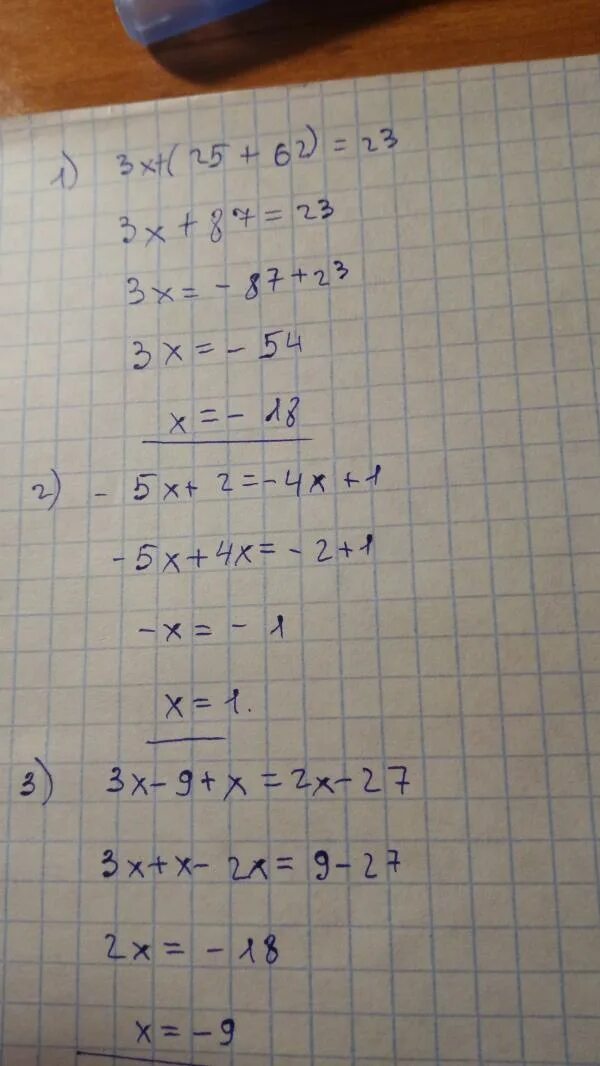 1) 3x+(25+62)=23
3x+87=23
3x=-87+23
3x=-54
x=-18
2) -5x+2=-4x+1
-5x+4x=-2+1
-x=-1
x=1.
3) 3x-9+x=2x-27
3x+x-2x=9-27
2x=-18
x=-9